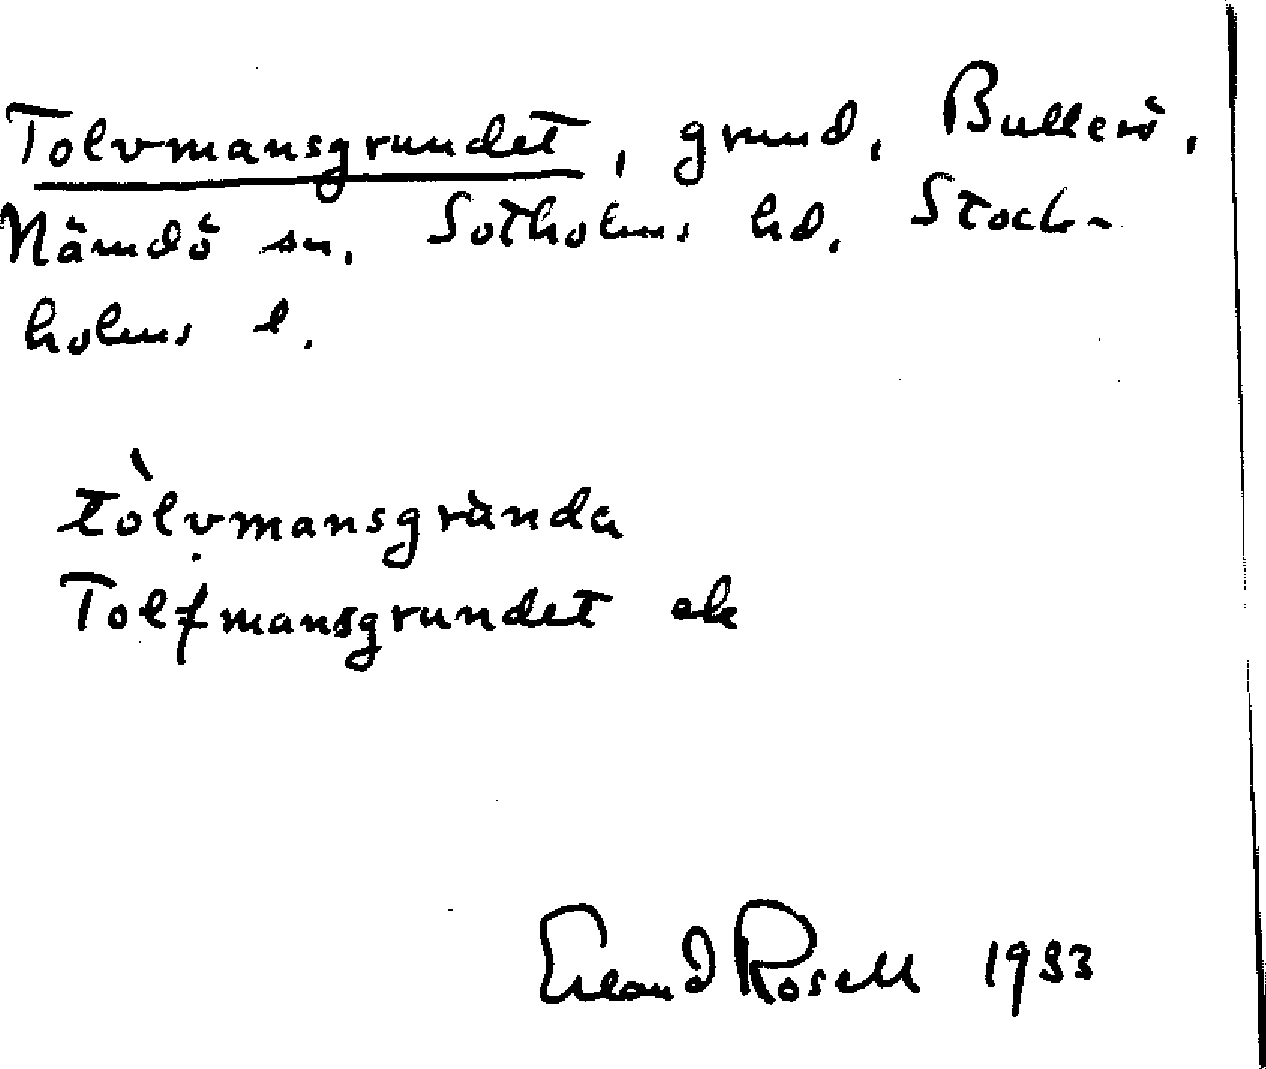 Tolvmansgrundet, grund, Bullerö,
Nämdö sn, Sotholms hd, Stock-
holms l.
tòlvmansgrùnda
Tolfmansgrundet ek
Erland Rosell 1983